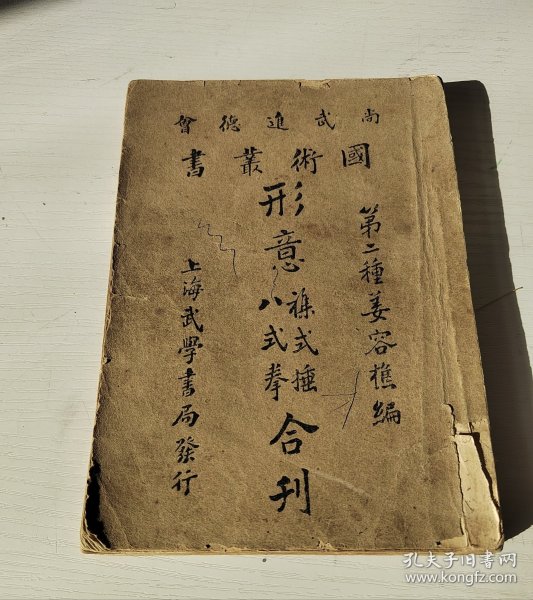 尚武進德會
國術叢書
第二種姜容樵編
形意雜式捶八式拳合刊
上海武學書局發行
孔夫子旧书网
www.kongfz.com